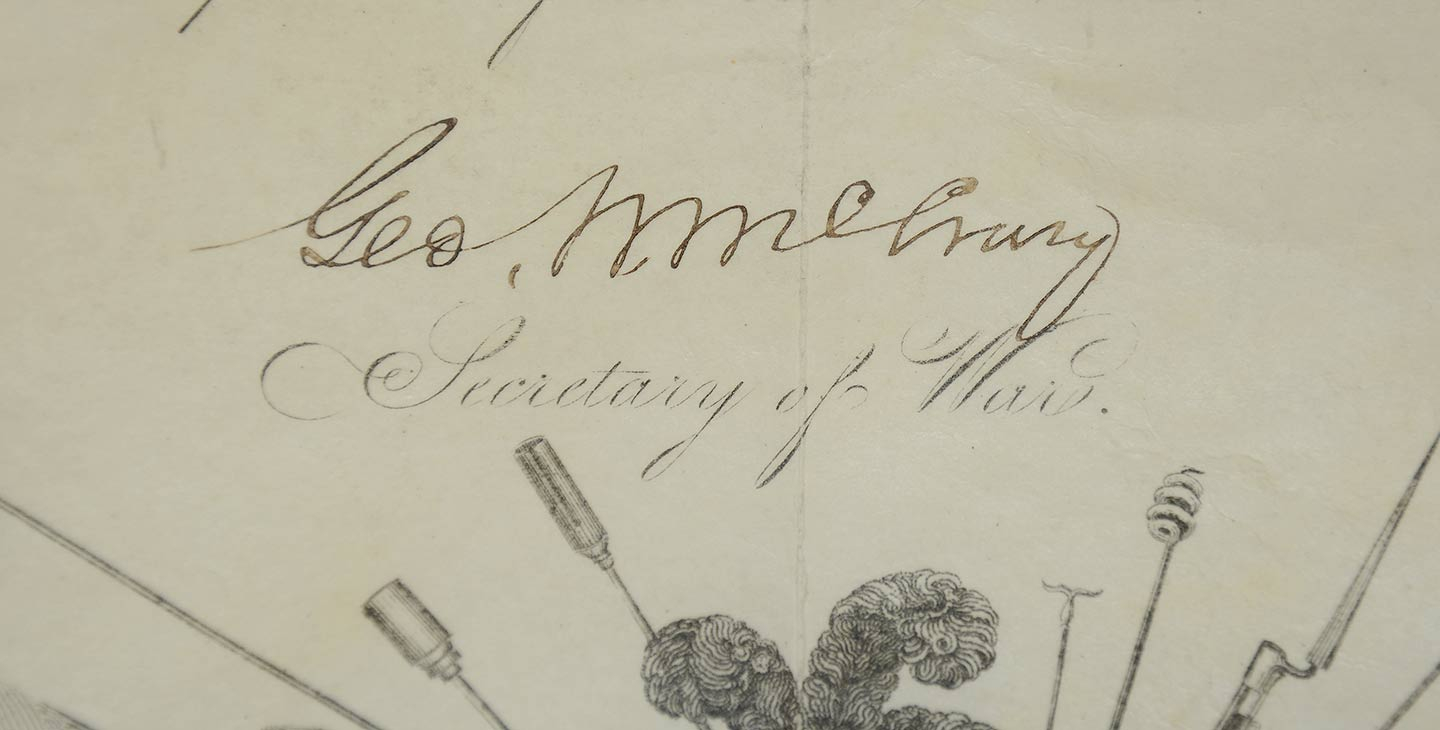 Geo. W. McCrary
Secretary of War.